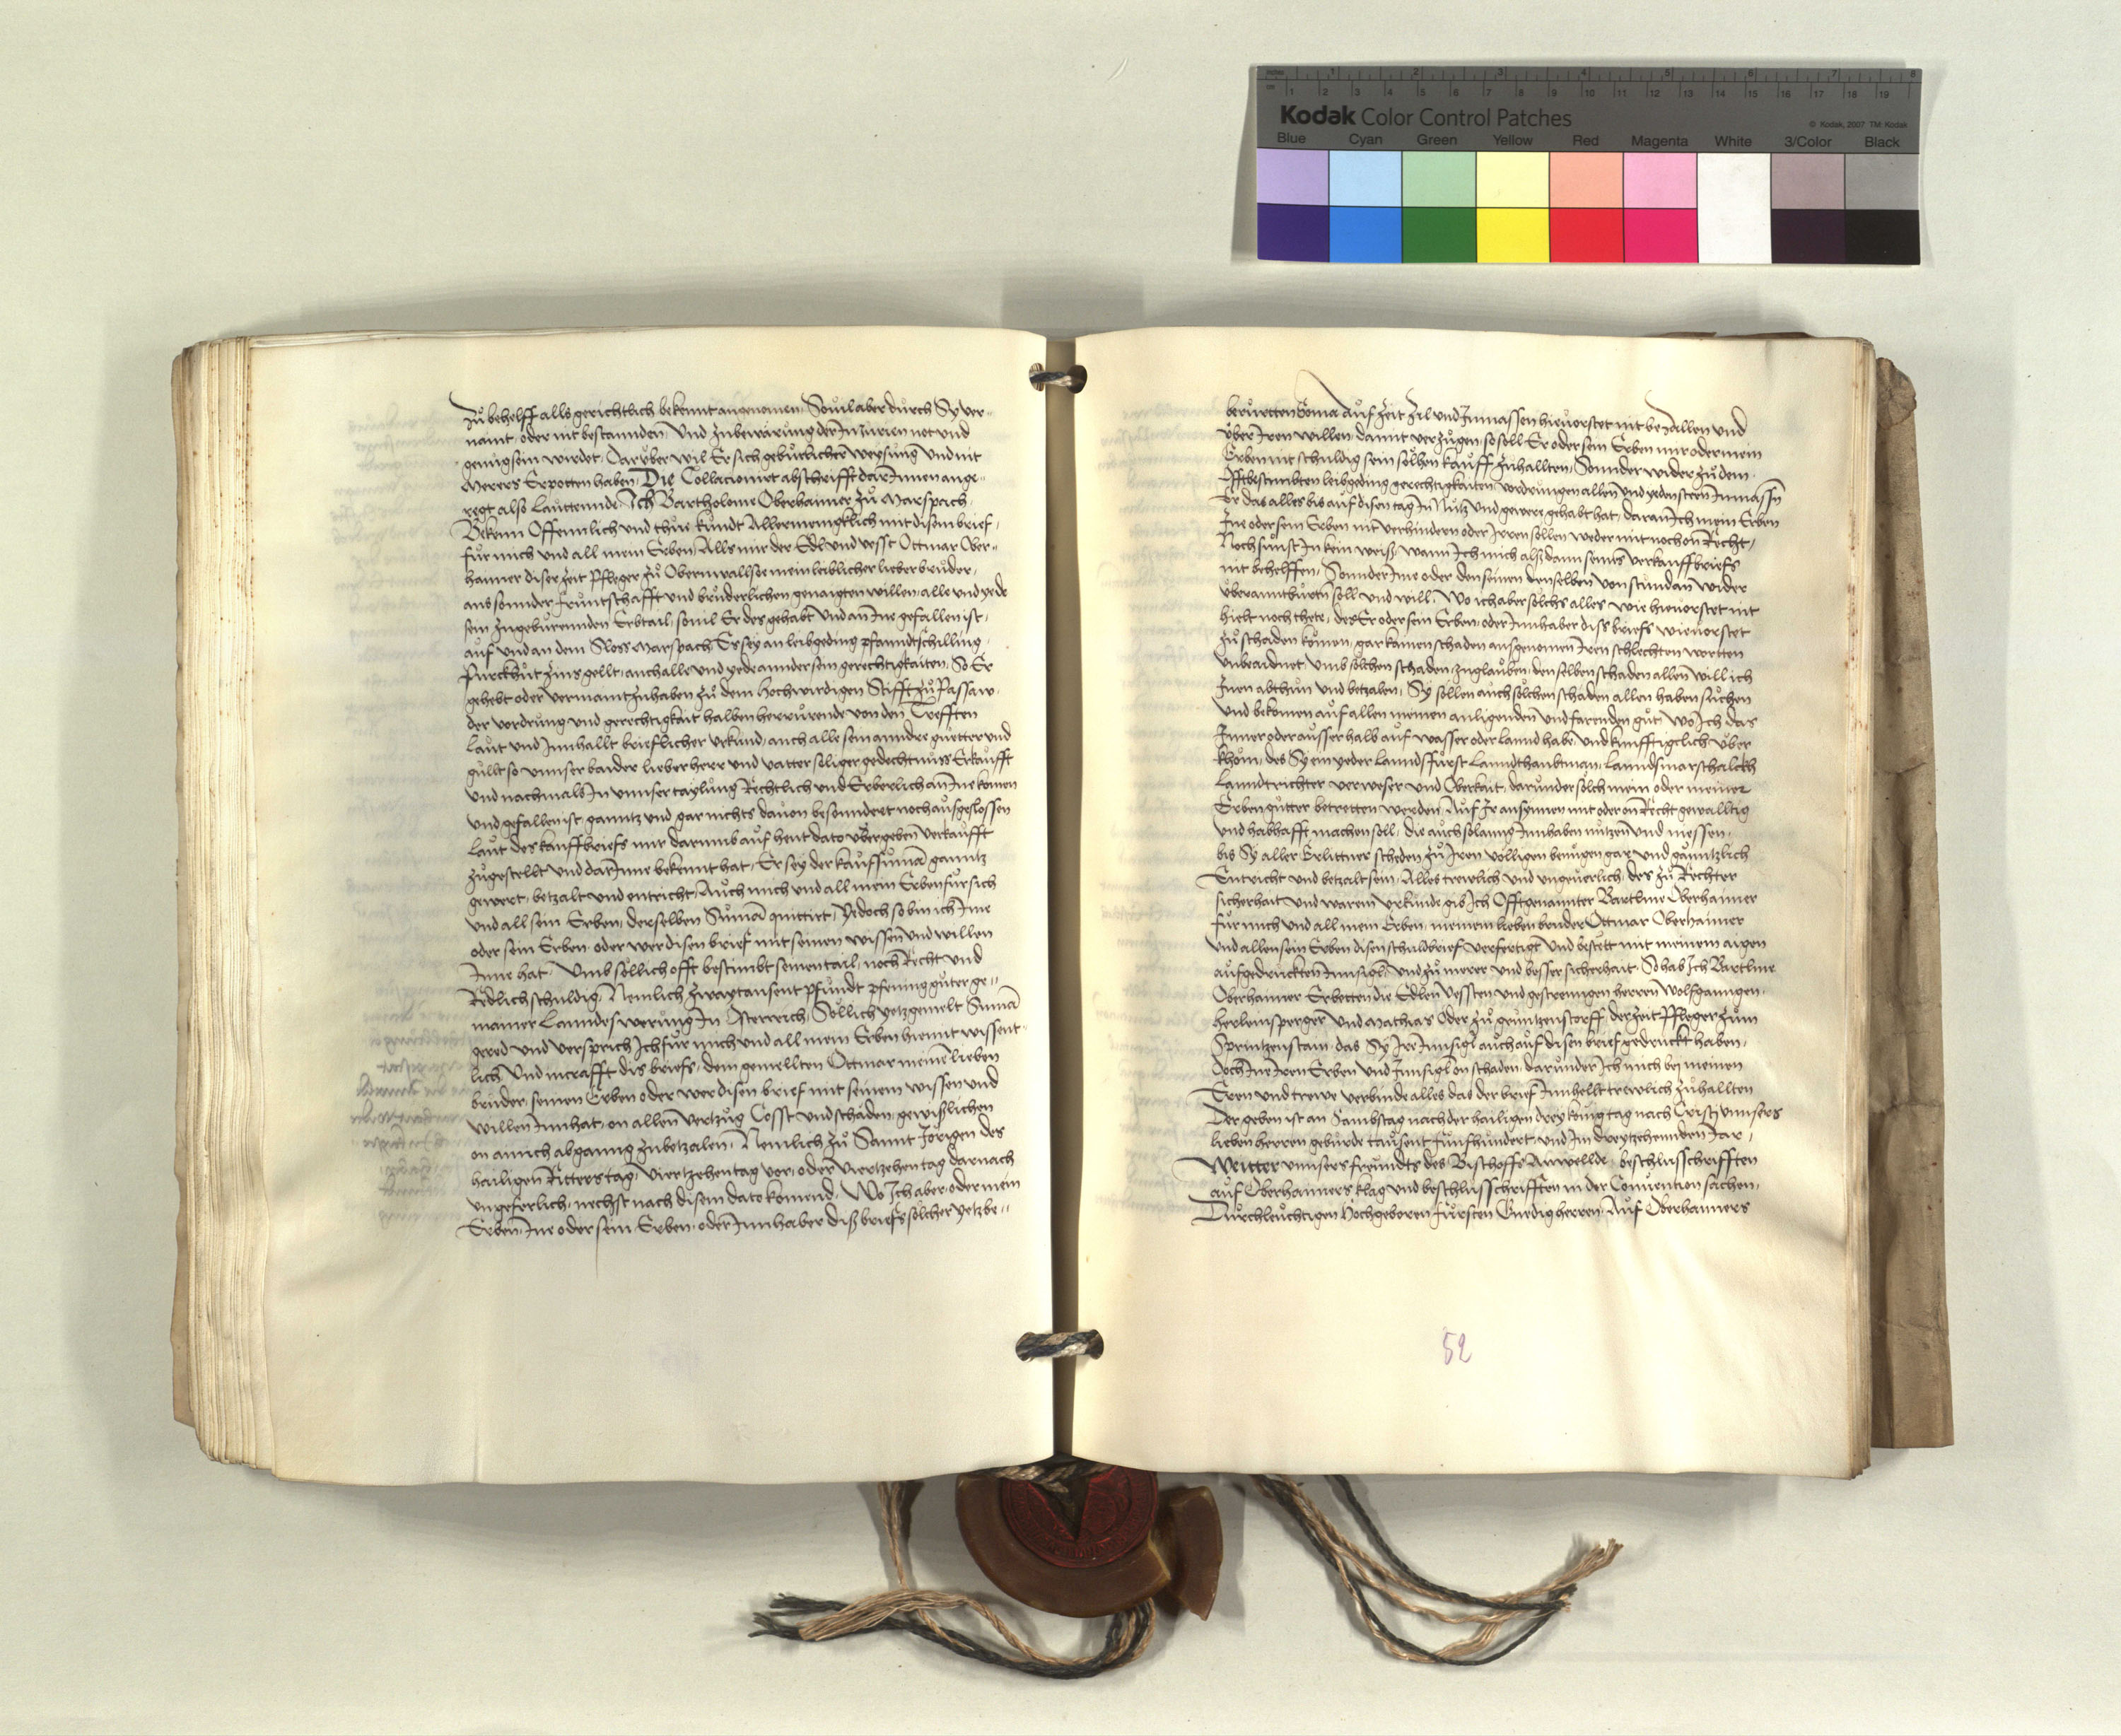 inches 1 2 3 4 5 6 7 8
cm 1 2 3 4 5 6 7 8 9 10 11 12 13 14 15 16 17 18 19
Kodak Color Control Patches © Kodak, 2007 TM: Kodak
Blue Cyan Green Yellow Red Magenta White 3/Color Black
Zů behelff alls gerichtlich bekennt angenomen, Souil aber durch Sy ver-
namt, oder nit bestannden, Und zubewarung der Injurien not und
genůgsem wirdet, Darůber wil Er sich gebůrlicher weysung und nit
Merers Erpotten haben, Die Collacionirt abschrifft darInnen ange-
regt also Lauttennde, Ich Bartholome Oberhaimer zů Marspach
Bekenn Offennlich und thue kundt Allermenigklich mit disem brief,
fůr mich und all mein Erben, Alls mir der Edl und vesst Ottmar Ober-
haimer diser zeit Pfleger zů Obernwallsee mein leiblicher lieber brůder,
aus sonnder fruntschafft und brůderlichen genaigten willen, alle und yede
sein zugebůrennden Erbtail, souil Er des gehabt und an Ine gefallen ist,
auf und an dem Sloss Marspach, Er sey an leibgeding pfanndtschilling
Purckhůt zins gellt, auch alle und yede annder sein gerechtigkaiten, So Er
gehebt oder vermaint zuhaben zů dem hochwirdigen Stifft zů Passaw,
der vordrung und gerechtigkait halben herrůrende von den Trefften
Laut und Innhallt brieflicher urkund, auch alle sein anndre guetter und
gullt so unnser baider lieber herr und vatter seliger gedechtnuss Erkaufft
und nachmals In unnser taylung Rechtlich und Erberlich an Ine komen
und gefallen ist, ganntz und gar nichts dauon besonndert noch ausgeslossen
Laut des kauffbriefs mir darumb auf heut dato ubergeben verkaufft
zugestellt und darInne bekennt hat, Er sey der kaufsuma ganntz
gewert, betzalt und entricht, Auch mich und all mein Erben fur sich
und all sein Erben, derselben Suma quittirt, Yedoch so bin ich Ime
oder sein Erben, oder wer disen brief mit seinem wissen und willen
Inne hat, Umb sollich offt bestimbt seinen tail, noch Recht und
Redlich schuldig, Nemlich zwaytausent pfundt pfening guter ge-
mainer Lanndes werung In Osterreich, Söllich yetzgemelt Suma
gered und versprich Ich fur mich und all mein Erben hiemit wissent-
lich Und in crafft dis briefs, dem gemellten Ottmar meinem lieben
brůder, seinen Erben oder wer disen brief mit seinem wissen und
willen Innhat, on allen vertzug Cosst und schaden, gewißlichen
on ainich abganng zubetzalen, Nemlich zů Sannt Jörigen des
heiligen Ritters tag, Viertzehen tag vor, oder Viertzehen tag darnach
ungeferlich, nechst nach disem dato komend, Wo Ich aber oder mein
Erben, Ine oder sein Erben, oder Innhaber diß briefs solcher yetzbe-
berurtten Soma Auf zeit zil und Inmassen hieuorstet nit bezallen und
über Iren willen, damit verzugen, so soll Er oder sein Erben mir oder mein
Erben nit schuldig sein solhen kauff zuhallten, Sonnder wider zů dem
Offtbestimbten leibgeding gerechtigkaiten vordrungen allen und yeden steen Inmassn
Er das alles bis auf disen tag In Nutz und gewere gehabt hat, daran Ich mein Erben
Ine oder sein Erben nit verhindern oder Irren sollen weder mit noch on Recht,
Noch sunst In kein weiß, wann Ich mich alßdann seins verkauffbriefs
nit behelffen, Sonnder Ime oder den seinen denselben von stundan wider
uberanntburtn soll und will, Wo ich aber solchs alles wie hieuorstet nit
hielt noch thete, des Er oder sein Erben, oder Innhaber diss briefs wieuorstet
zů schaden komen, gar kainen schaden ausgenomen Iren schlechten wortten
Unbeaidnet, Umb solchen schaden, zuglauben, denselben schaden allen will ich
Inen abthun und betzalen, Sy sollen auch solchen schaden allen haben suchen
und bekomen auf allen meinen anligenden und farenden gut, wo Ich das
Inner oder ausserhalb auf wasser oder Lannd habe, und kunfftigclich uber
khom, des Sy ein yeder Lanndsfurst Lanndthaubtman, Lanndsmarschalckh
Lanndtrichter verweser und Oberkait, darunder solch mein oder meiner
Erben gutter betretten werden, Auf Ir ansynnen mit oder on Recht gewalltig
und habhafft machen soll, die auch solanng Innhaben nutzen und niessen,
bis Sy aller Erlittner scheden zů Iren volligen benugen gar und ganntzlich
Entricht und betzalt sein, Alles trewlich und ungeuerlich, des zů Rechter
sicherhait und warem Urkunde gib Ich Offtgenannter Bartlme Oberhaimer
fůr mich und all mein Erben, meinem lieben bruder Ottmar Oberhaimer
und allen sein Erben disen schuldbrief verfertigt und bestett mit meinem aigen
aufgedruckten Innsigl, Und zu merer und besser sicherhait, So hab Ich Bartlme
Oberhaimer Erbetten die Edlen vessten und gestrenngen herren Wolfganngen
herleinsperger und Mathias Oder zu gountzenstorff, der zeit Pfleger zum
Sprintzenstain, das Sy Ire Innsigl auch auf disen brief gedruckt haben,
Doch Ine Iren Erben und Innsigl on schaden, darunder Ich mich bei meinen
Eren und trewe verbinde alles das der brief Innhellt trewlich zuhallten
Der geben ist an Sambstag nach der heiligen drey konig tag nach Cristi unnsers
lieben herren geburde tausent funfhundert und Im dreytzehennden Iar,
Weitter unnsers freundts des Bischoffs Anwellde, beschlusschrifften
auf Oberhaimers klag und beschlusschrifften in der Convention sachen,
Durchleuchtigen Hochgeboren fursten Gnedig herren, Auf Oberhaimers
52